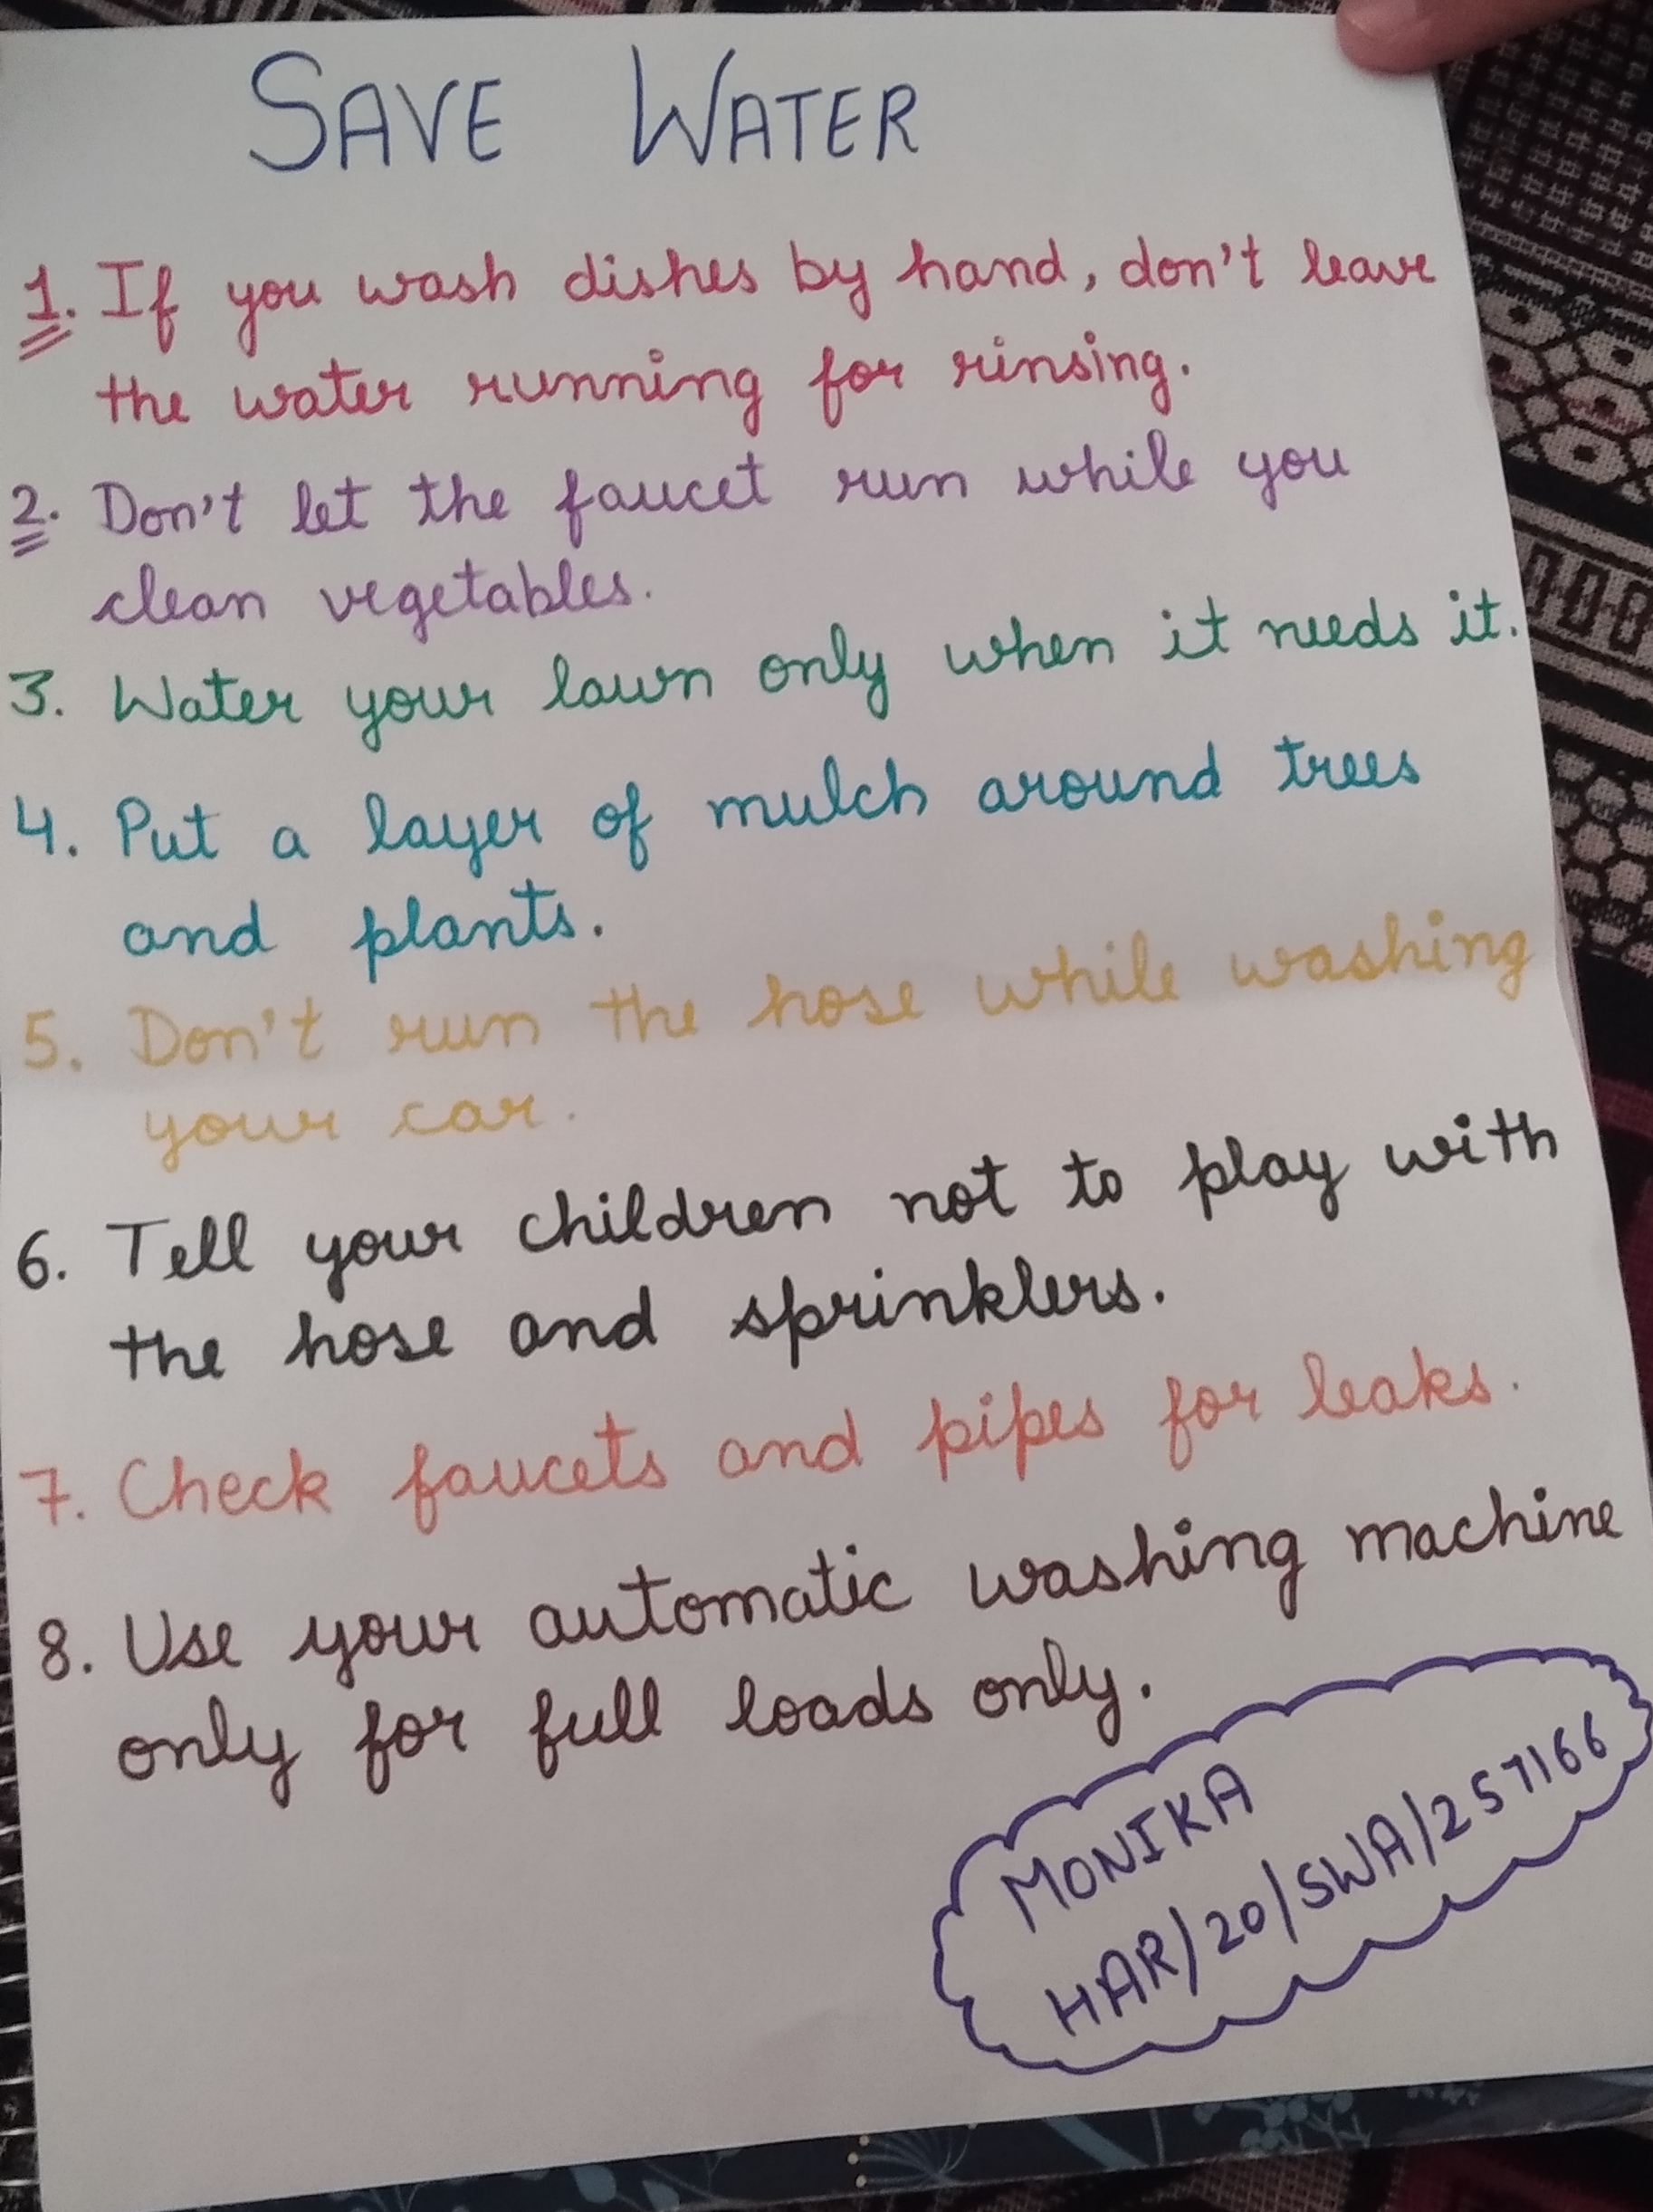 SAVE WATER
1. If you wash dishes by hand, don't leave
the water running for rinsing.
2. Don't let the faucet run while you
clean vegetables.
3. Water your lawn only when it needs it.
4. Put a layer of mulch around trees
and plants.
5. Don't run the hose while washing
your car.
6. Tell your children not to play with
the hose and sprinklers.
7. Check faucets and pipes for leaks.
8. Use your automatic washing machine
only for full loads only.
MONIKA
HAR/20/SWA/257166